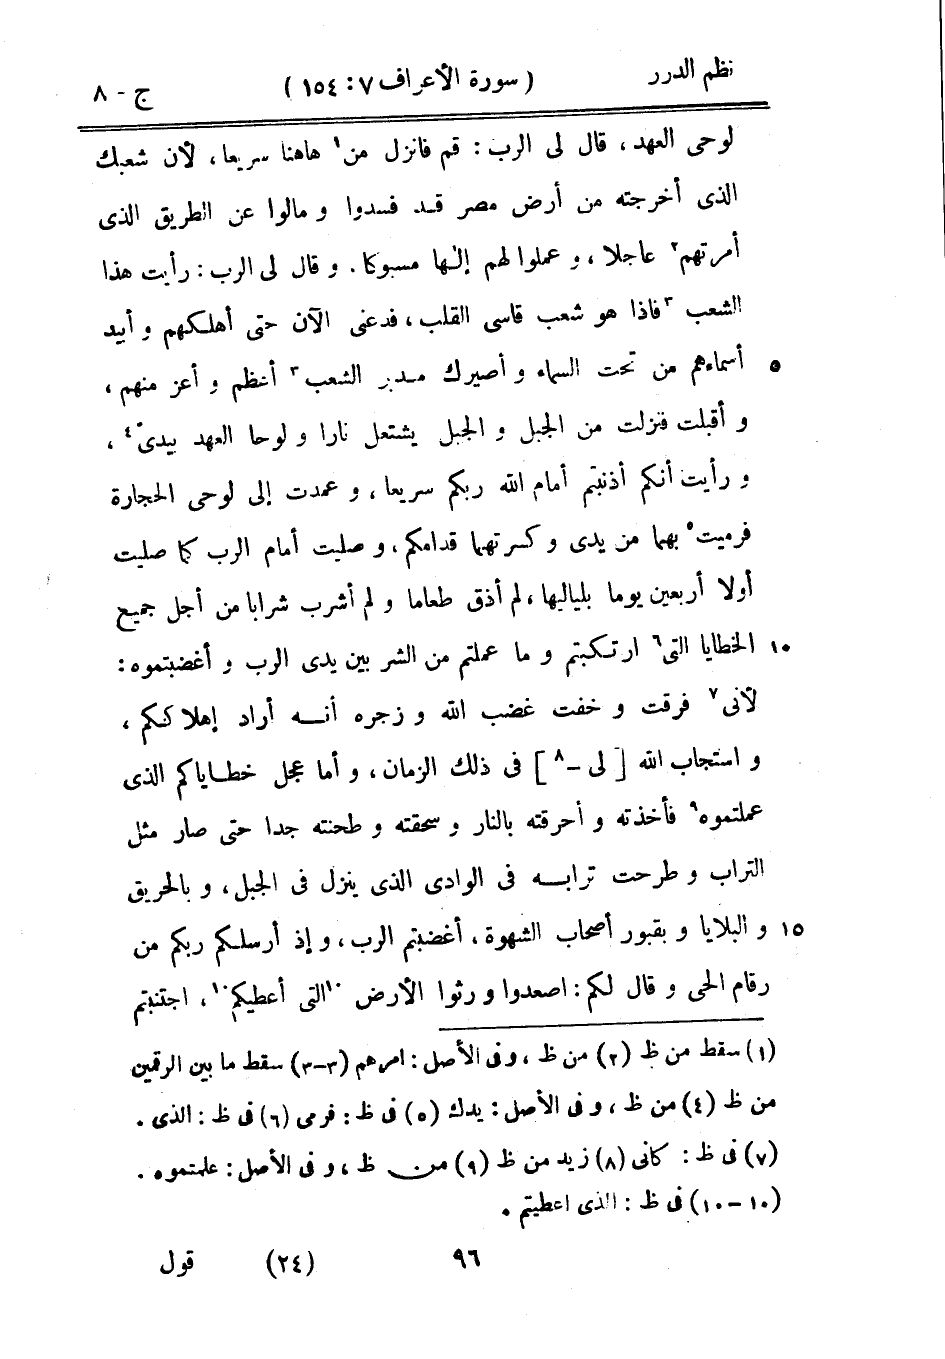 نظم الدرر ( سورة الأعراف ٧ : ١٥٤ ) ج - ٨
لوحى العهد ، قال لى الرب : قم فانزل من١ هاهنا سريعا ، لأن شعبك
الذى أخرجته من أرض مصر قد فسدوا و مالوا عن الطريق الذى
أمرتهم٢ عاجلا ، و عملوا لهم إلها مسبوكا . و قال لى الرب : رأيت هذا
الشعب ٣فاذا هو شعب قاسى القلب ، فدعنى الآن حتى أهلكهم و أبيد
٥ أسماءهم من تحت السماء و أصيرك مدبر الشعب٣ أعظم و أعز منهم ،
و أقبلت فنزلت من الجبل و الجبل يشتعل نارا و لوحا العهد بيدى٤ ،
و رأيت أنكم أذنبتم أمام الله ربكم سريعا ، و عمدت إلى لوحى الحجارة
فرميت٥ بهما من يدى و كسرتهما قدامكم ، و صليت أمام الرب كما صليت
أولا أربعين يوما بلياليها ، لم أذق طعاما و لم أشرب شرابا من أجل جميع
١٠ الخطايا التى٦ ارتكبتم و ما عملتم من الشر بين يدى الرب و أغضبتموه :
لأنى٧ فرقت و خفت غضب الله و زجره أنه أراد إهلاككم ،
و استجاب الله [ لى -٨ ] فى ذلك الزمان ، و أما عجل خطاياكم الذى
عملتموه٩ فأخذته و أحرقته بالنار و سحقته و طحنته جدا حتى صار مثل
التراب و طرحت ترابه فى الوادى الذى ينزل فى الجبل ، و بالحريق
١٥ و البلايا و بقبور أصحاب الشهوة ، أغضبتم الرب ، و إذ أرسلكم ربكم من
رقام الحى و قال لكم : اصعدوا و رثوا الأرض ١٠التى أعطيكم١٠ ، اجتنبتم
(١) سقط من ظ (٢) من ظ ، و فى الأصل : امرهم (٣-٣) سقط ما بين الرقمين
من ظ (٤) من ظ ، و فى الأصل : يدك (٥) فى ظ : فرمى (٦) فى ظ : الذى .
(٧) فى ظ : كانى (٨) زيد من ظ (٩) من ظ ، و فى الأصل : علمتموه .
(١٠-١٠) فى ظ : الذى اعطيتم .
٩٦ (٢٤) قول